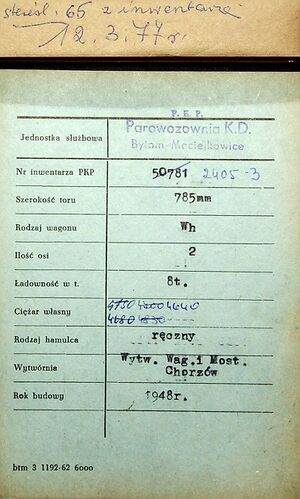 skreśl. 65 z inwentarza
12.3.77r.
P.K.P.
Jednostka służbowa Parowozownia K.D.
Bytom-Maciejkowice
Nr inwentarza PKP 50781 2405-3
Szerokość toru 785mm
Rodzaj wagonu Wh
Ilość osi 2
Ładowność w t. 8t.
Ciężar własny 4750 4200 4640
4680 4830
Rodzaj hamulca ręczny
Wytwórnia Wytw. Wag.i Most.
Chorzów
Rok budowy 1948r.
btm 3 1192-62 6000